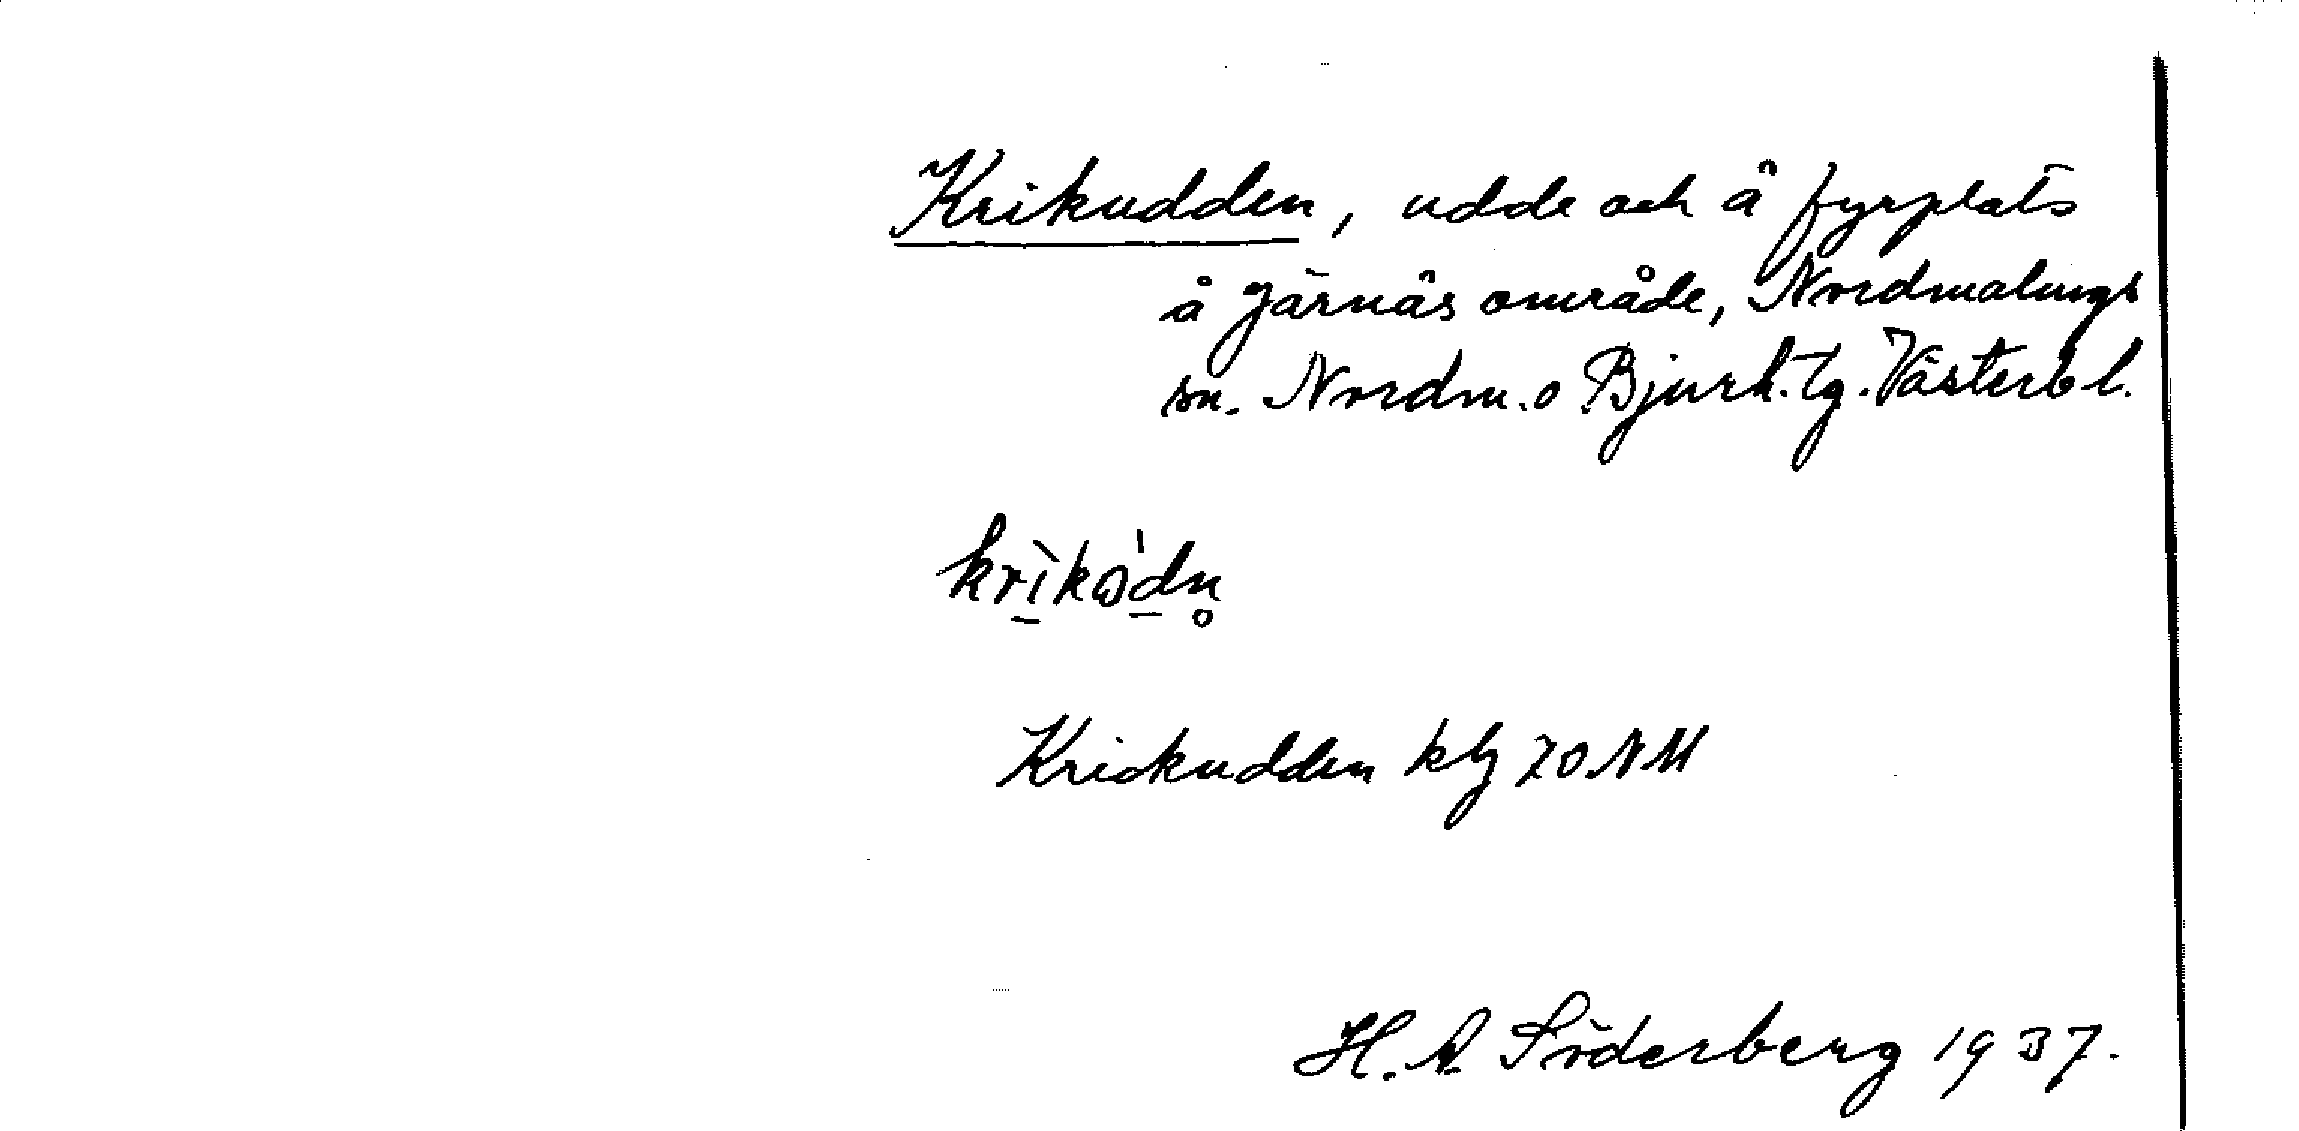 Krikudden, udde och å fyrplats
å Järnäs område, Nordmalings
sn. Nordm. o Bjurh. tg. Västerb l.
krìkὼdn̥
Krickudden klj 70 NM
H. A Söderberg 1937.